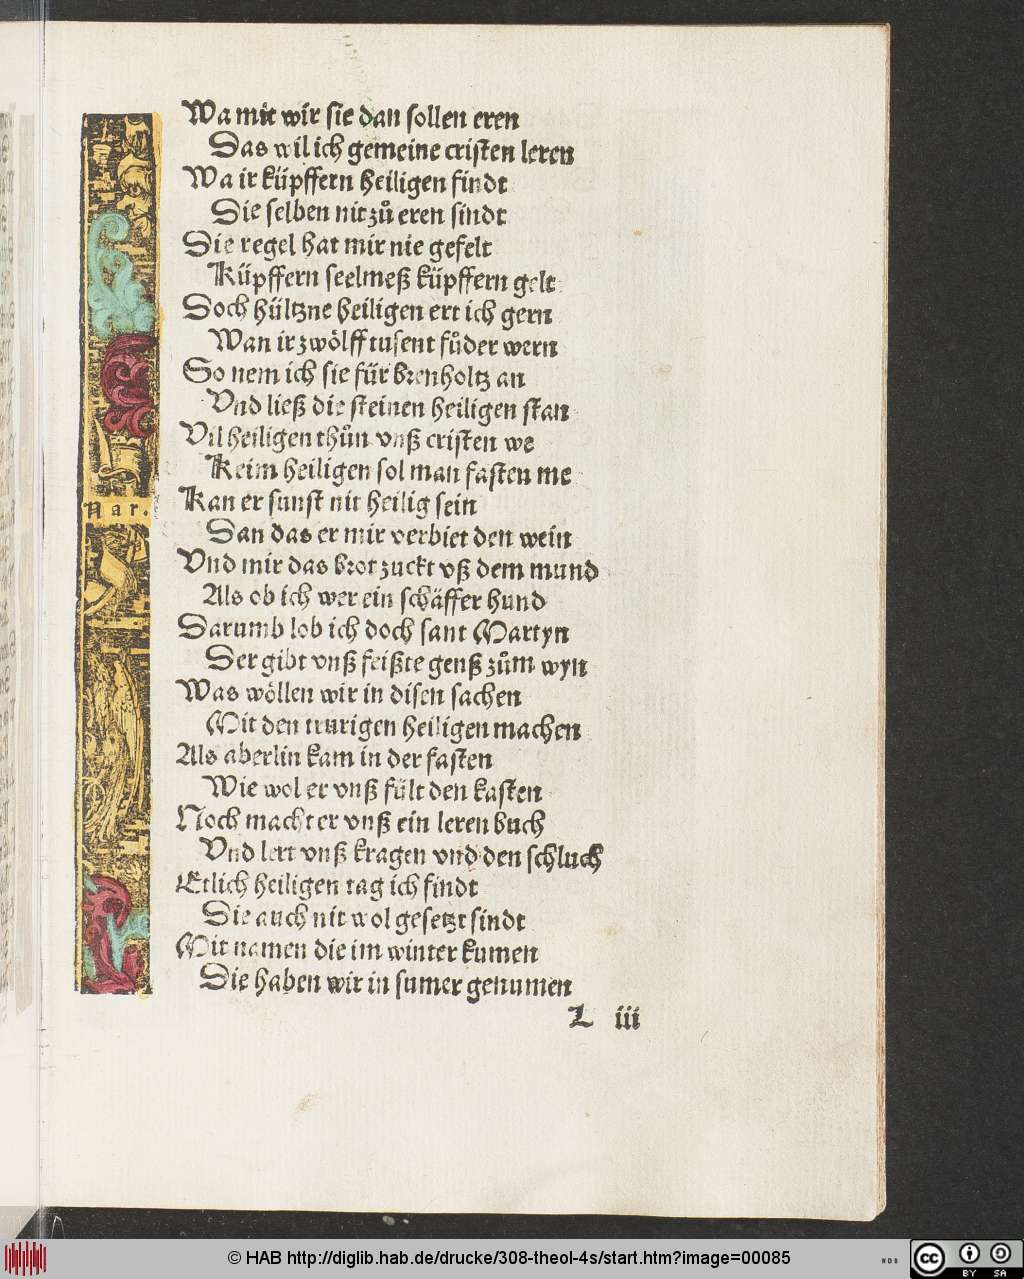 Wa mit wir sie dan sollen eren
Das wil ich gemeine cristen leren
Wa ir küpffern heiligen findt
Die selben nit zů eren sindt
Die regel hat mir nie gefelt
Küpffern seelmeß küpffern gelt
Doch hültzne heiligen ert ich gern
Wan ir zwölff tusent fůder wern
So nem ich sie für brenholtz an
Vnd ließ die steinen heiligen stan
Vil heiligen thůn vnß cristen we
Keim heiligen sol man fasten me
Nar.
Kan er sunst nit heilig sein
Dan das er mir verbiet den wein
Vnd mir das brot zuckt vß dem mund
Als ob ich wer ein schäffer hund
Darumb lob ich doch sant Martyn
Der gibt vnß feißte genß zům wyn
Was wöllen wir in disen sachen
Mit den trurigen heiligen machen
Als aberlin kam in der fasten
Wie wol er vnß fült den kasten
Noch macht er vnß ein leren buch
Vnd lert vnß kragen vnd den schluch
Etlich heiligen tag ich findt
Die auch nit wol gesetzt sindt
Mit namen die im winter kumen
Die haben wir in sumer genumen
L iii
© HAB http://diglib.hab.de/drucke/308-theol-4s/start.htm?image=00085
WDB
cc BY SA